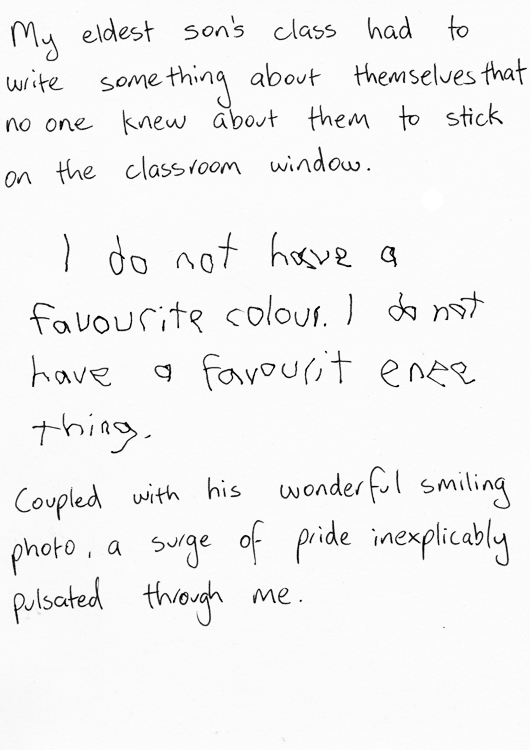 My eldest son's class had to
write something about themselves that
no one knew about them to stick
on the classroom window.
I do not have a
favourite colour. I do not
have a favourit enee
thing.
Coupled with his wonderful smiling
photo, a surge of pride inexplicably
pulsated through me.